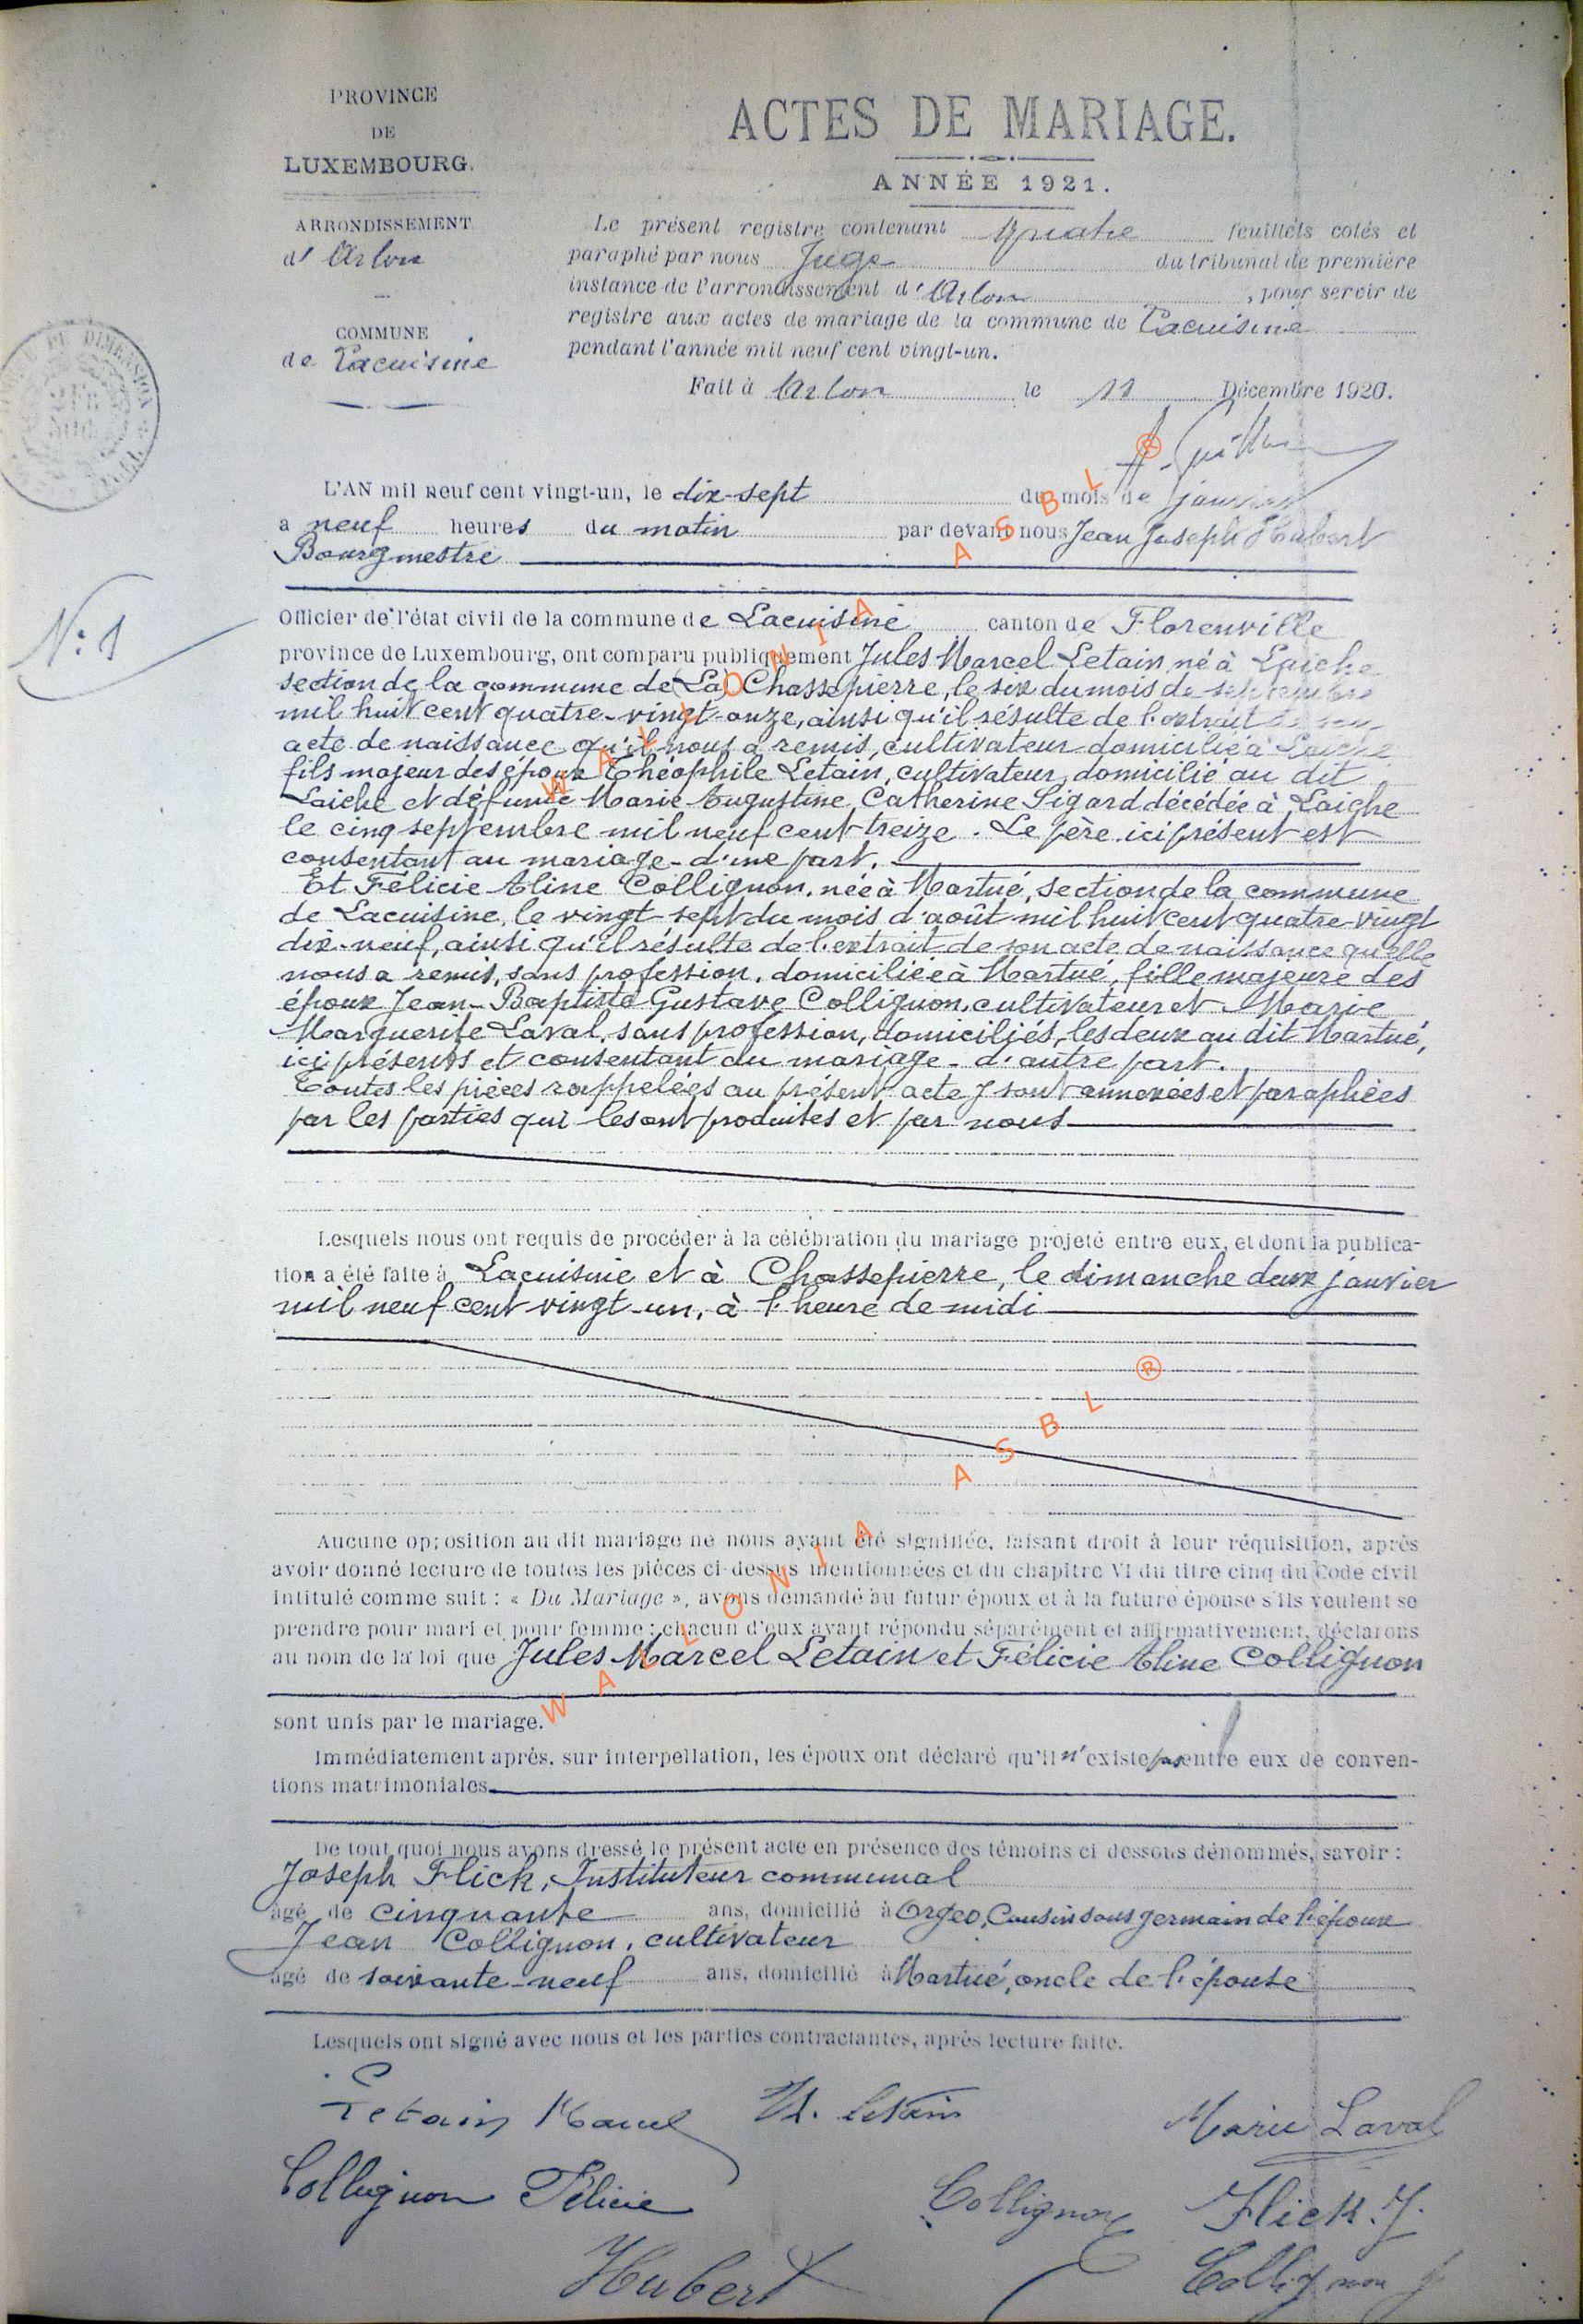 PROVINCE
DE
LUXEMBOURG.
ARRONDISSEMENT
d'Arlon
COMMUNE
de Lacuisine
ACTES DE MARIAGE.
ANNÉE 1921.
Le présent registre contenant quatre feuillets cotés et
paraphé par nous Juge du tribunal de première
instance de l'arrondissement d'Arlon, pour servir de
registre aux actes de mariage de la commune de Lacuisine
pendant l'année mil neuf cent vingt-un.
Fait à Arlon le 11 Décembre 1920.
L'AN mil neuf cent vingt-un, le dix-sept du mois de janvier
a neuf heures du matin par devant nous Jean Joseph Hubert
Bourgmestre
N: 1
Officier de l'état civil de la commune de Lacuisine canton de Florenville
province de Luxembourg, ont comparu publiquement Jules Marcel Letain, né à Laiche
section de la commune de (La) Chassepierre, le six du mois de septembre
mil huit cent quatre-vingt-onze, ainsi qu'il résulte de l'extrait de son
acte de naissance qu'il nous a remis, cultivateur domicilié à Laiche
fils majeur des époux Théophile Letain, cultivateur, domicilié au dit
Laiche et défunte Marie Augustine Catherine Sigard décédée à Laiche
le cinq septembre mil neuf cent treize. Le père ici présent est
consentant au mariage - d'une part.
Et Félicie Aline Collignon, née à Martué, section de la commune
de Lacuisine, le vingt-sept du mois d'août mil huit cent quatre-vingt
dix-neuf, ainsi qu'il résulte de l'extrait de son acte de naissance qu'elle
nous a remis, sans profession, domiciliée à Martué, fille majeure des
époux Jean-Baptiste Gustave Collignon, cultivateur et Marie
Marguerite Laval, sans profession, domiciliés, les deux au dit Martué,
ici présents et consentant au mariage - d'autre part.
Toutes les pièces rappelées au présent acte y sont annexées et paraphées
par les parties qui les ont produites et par nous
Lesquels nous ont requis de procéder à la célébration du mariage projeté entre eux, et dont la publica-
tion a été faite à Lacuisine et à Chassepierre, le dimanche deux janvier
mil neuf cent vingt-un, à l'heure de midi
Aucune opposition au dit mariage ne nous ayant été signifiée, faisant droit à leur réquisition, après
avoir donné lecture de toutes les pièces ci-dessus mentionnées et du chapitre VI du titre cinq du Code civil
intitulé comme suit : « Du Mariage », avons demandé au futur époux et à la future épouse s'ils veulent se
prendre pour mari et pour femme ; chacun d'eux ayant répondu séparément et affirmativement, déclarons
au nom de la loi que Jules Marcel Letain et Félicie Aline Collignon
sont unis par le mariage.
Immédiatement après, sur interpellation, les époux ont déclaré qu'il n'existe pas entre eux de conven-
tions matrimoniales.
De tout quoi nous avons dressé le présent acte en présence des témoins ci dessous dénommés, savoir :
Joseph Flick, Instituteur communal
âgé de cinquante ans, domicilié à Orgeo, Cousin sous germain de l'époux
Jean Collignon, cultivateur
âgé de soixante-neuf ans, domicilié à Martué, oncle de l'épouse
Lesquels ont signé avec nous et les parties contractantes, après lecture faite.
Letain Marcel Th. Letain Marie Laval
Collignon Félicie Collignon Flick. J.
Hubert Collignon J
WALLONIA ASBL ®
WALLONIA ASBL ®